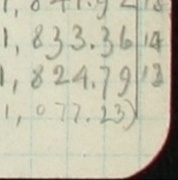 1, 841.92
1, 833.36 14
1, 824.79 13
1, 077.23)